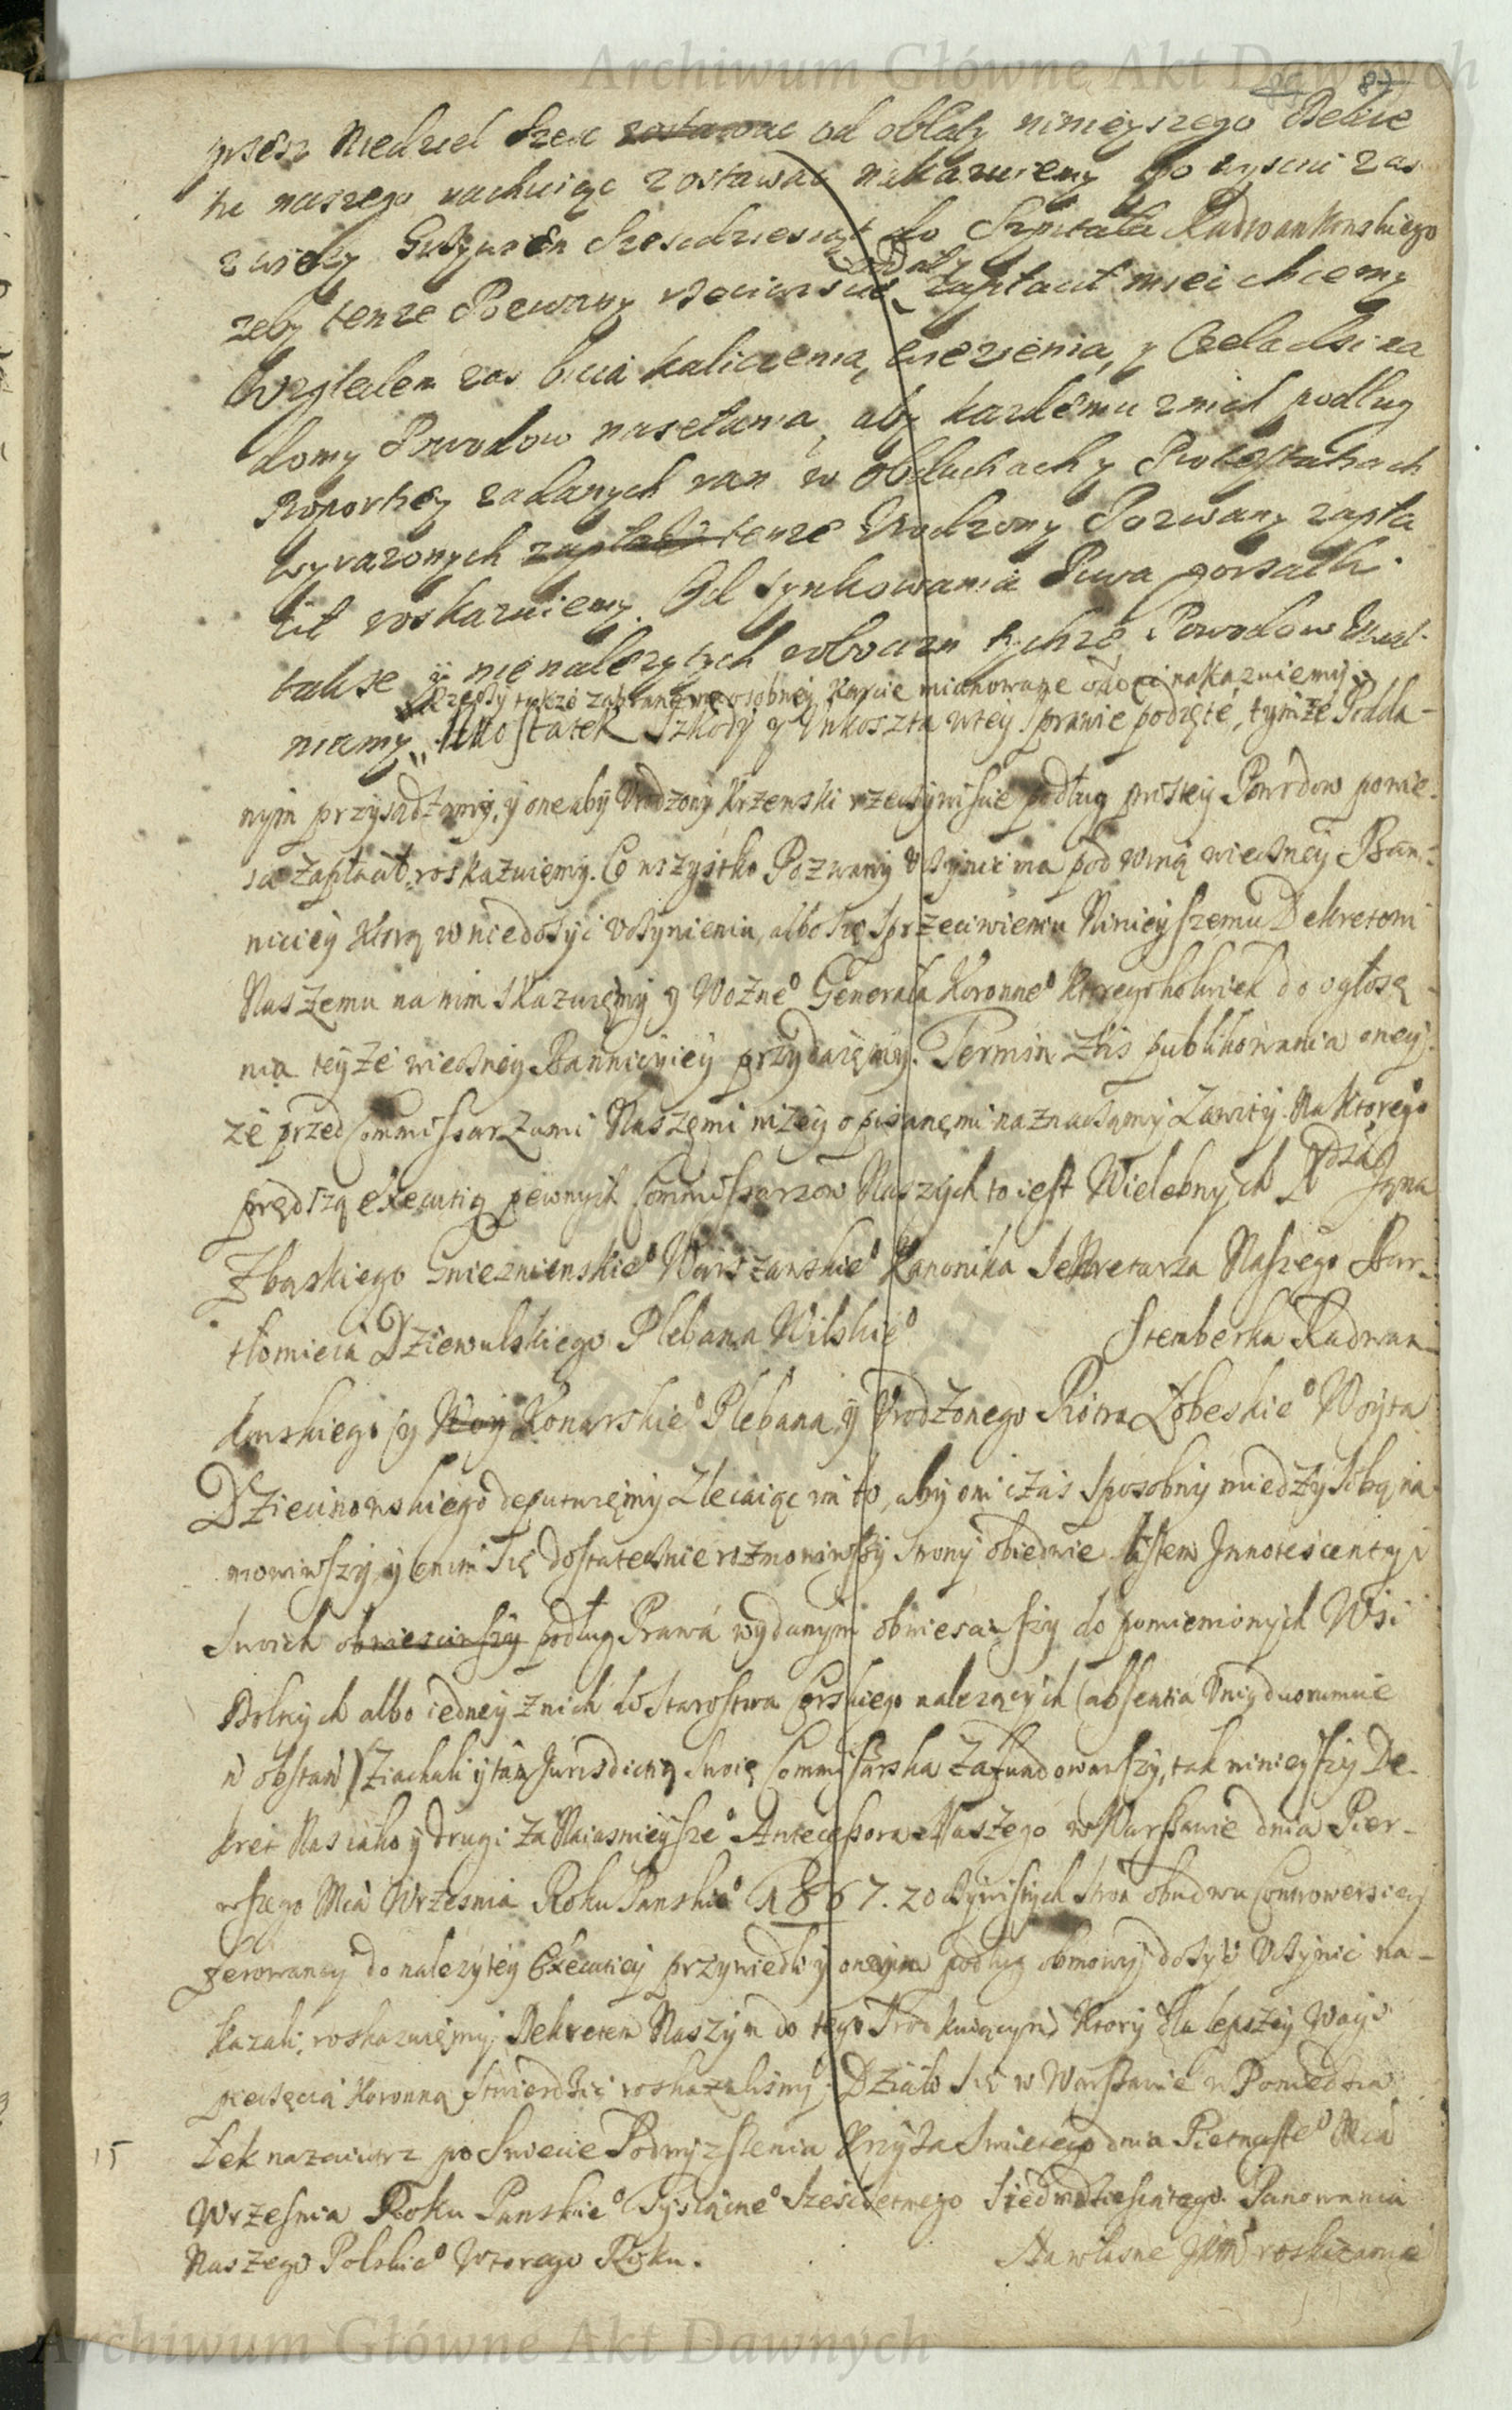 Archiwum Główne Akt Dawnych
87
przesz Niedziel szesc zostawac od oblaty ninieyszego Dekre
tu naszego rachuiąc zostawac nakazuiemy po wysciu zas
z wiezy Grzywien szescdziesiąt do Szpitala Radwankowskiego
zeby tenze Pozwany zapłacił miec chcemy
Względem zas bicia kaliczenia, więzienia, y Czeladzi na
domy Powodow nasełania, aby kazdemu z nich podług
Proporcyey zadanych ran w obductach y Protestatiach
wyrazonych zapłacił tenze Urodzony Pozwany zapła
cił roskazuiemy. Od szynkowania Piwa gorzałki
takze y nienalezytych robocizn tychze Powodow Uwal-
Rzeczy takze zabrane na osobney karcie mianowane oddac nakazuiemy
niamy. Na ostatek Szkody y Unkoszta w tey Sprawie podięte, tymże Podda-
nym przysądzamy, y one aby Urodzony Krzewski rzeczywiscie podług przysięgi Powodow ponie-
sie zapłacił, roskazuięmy. Co wszystko Pozwany uczynic ma pod winą wieczney Ban-
niciey którą w niedosyc uczynieniu, albo się sprzeciwieniu Ninieyszemu Dekretowi
Naszemu na nim skazuięmy y Woźne° Generała Koronne° ktoregokolwiek do ogłosze-
nia teyże wieczney Banniciyiey przydaięmy. Termin zas publikowania oney
że przed Commissarzami Naszemi niżey opisanęmi naznaczamy Zawity. Na ktorego
prędszą executią pewnych Commissarzow Naszych to iest Wielebnych Xdza Jana
Zbąskiego Gnieznienskie° Warszawskie° Kanonika Sekretarza Naszego Bar-
tłomieia Dziewulskiego Plebana Wilskie° Stemberka Radwan-
kowskiego y Woy Konarskie° Plebana, y Urodzonego Piotra Łobeskie° Woyta
Dziecinowskiego deputuięmy Zlecaiąc im to, aby oni czas sposobny miedzy sobą na-
mowiwszy y onim się dostatecznie rozmowiwszy strony obiedwie listem Innotescentyi
Swoich obwiesciwszy podług Prawa wydanym obwiesciwszy do pomienionych Wsi
Dolnych albo iedney z nich do Starostwa Czerskiego nalezących (absentia unius duorumue
n obstan) Ziachali y tam Jurisdictią Swoię Commissarska zafundowawszy, tak ninieyszy De-
kret Nasz iako y drugi za Naiasnieysze° Antecessora Naszego w Warszawie dnia Pier-
wszego Mca Wrzesnia Roku Panskie° 1667. z oczywistych stron obudwu controwersiey
ferowany do nalezytey Executiey przywiedli y onęym podług obmowy dosyć uczynić na-
kazali, roskazuięmy, Dekretem Naszym do tego srodkuiącym Ktory dla lepszey Wagi
pieczęcią Koronną stwierdzić roskazalismy. Działo się w Warszawie w Poniedzia
15 łek nazaiutrz po Swiecie Podwyższenia Krzyża Swietego dnia Pietnaste° Mca
Wrzesnia Roku Panskie° Tysiącne° Szescsetnego Siedmdziesiątego. Panowania
Naszego Polskie° wtorego Roku. Na własne JKM roskazanie
Archiwum Główne Akt Dawnych